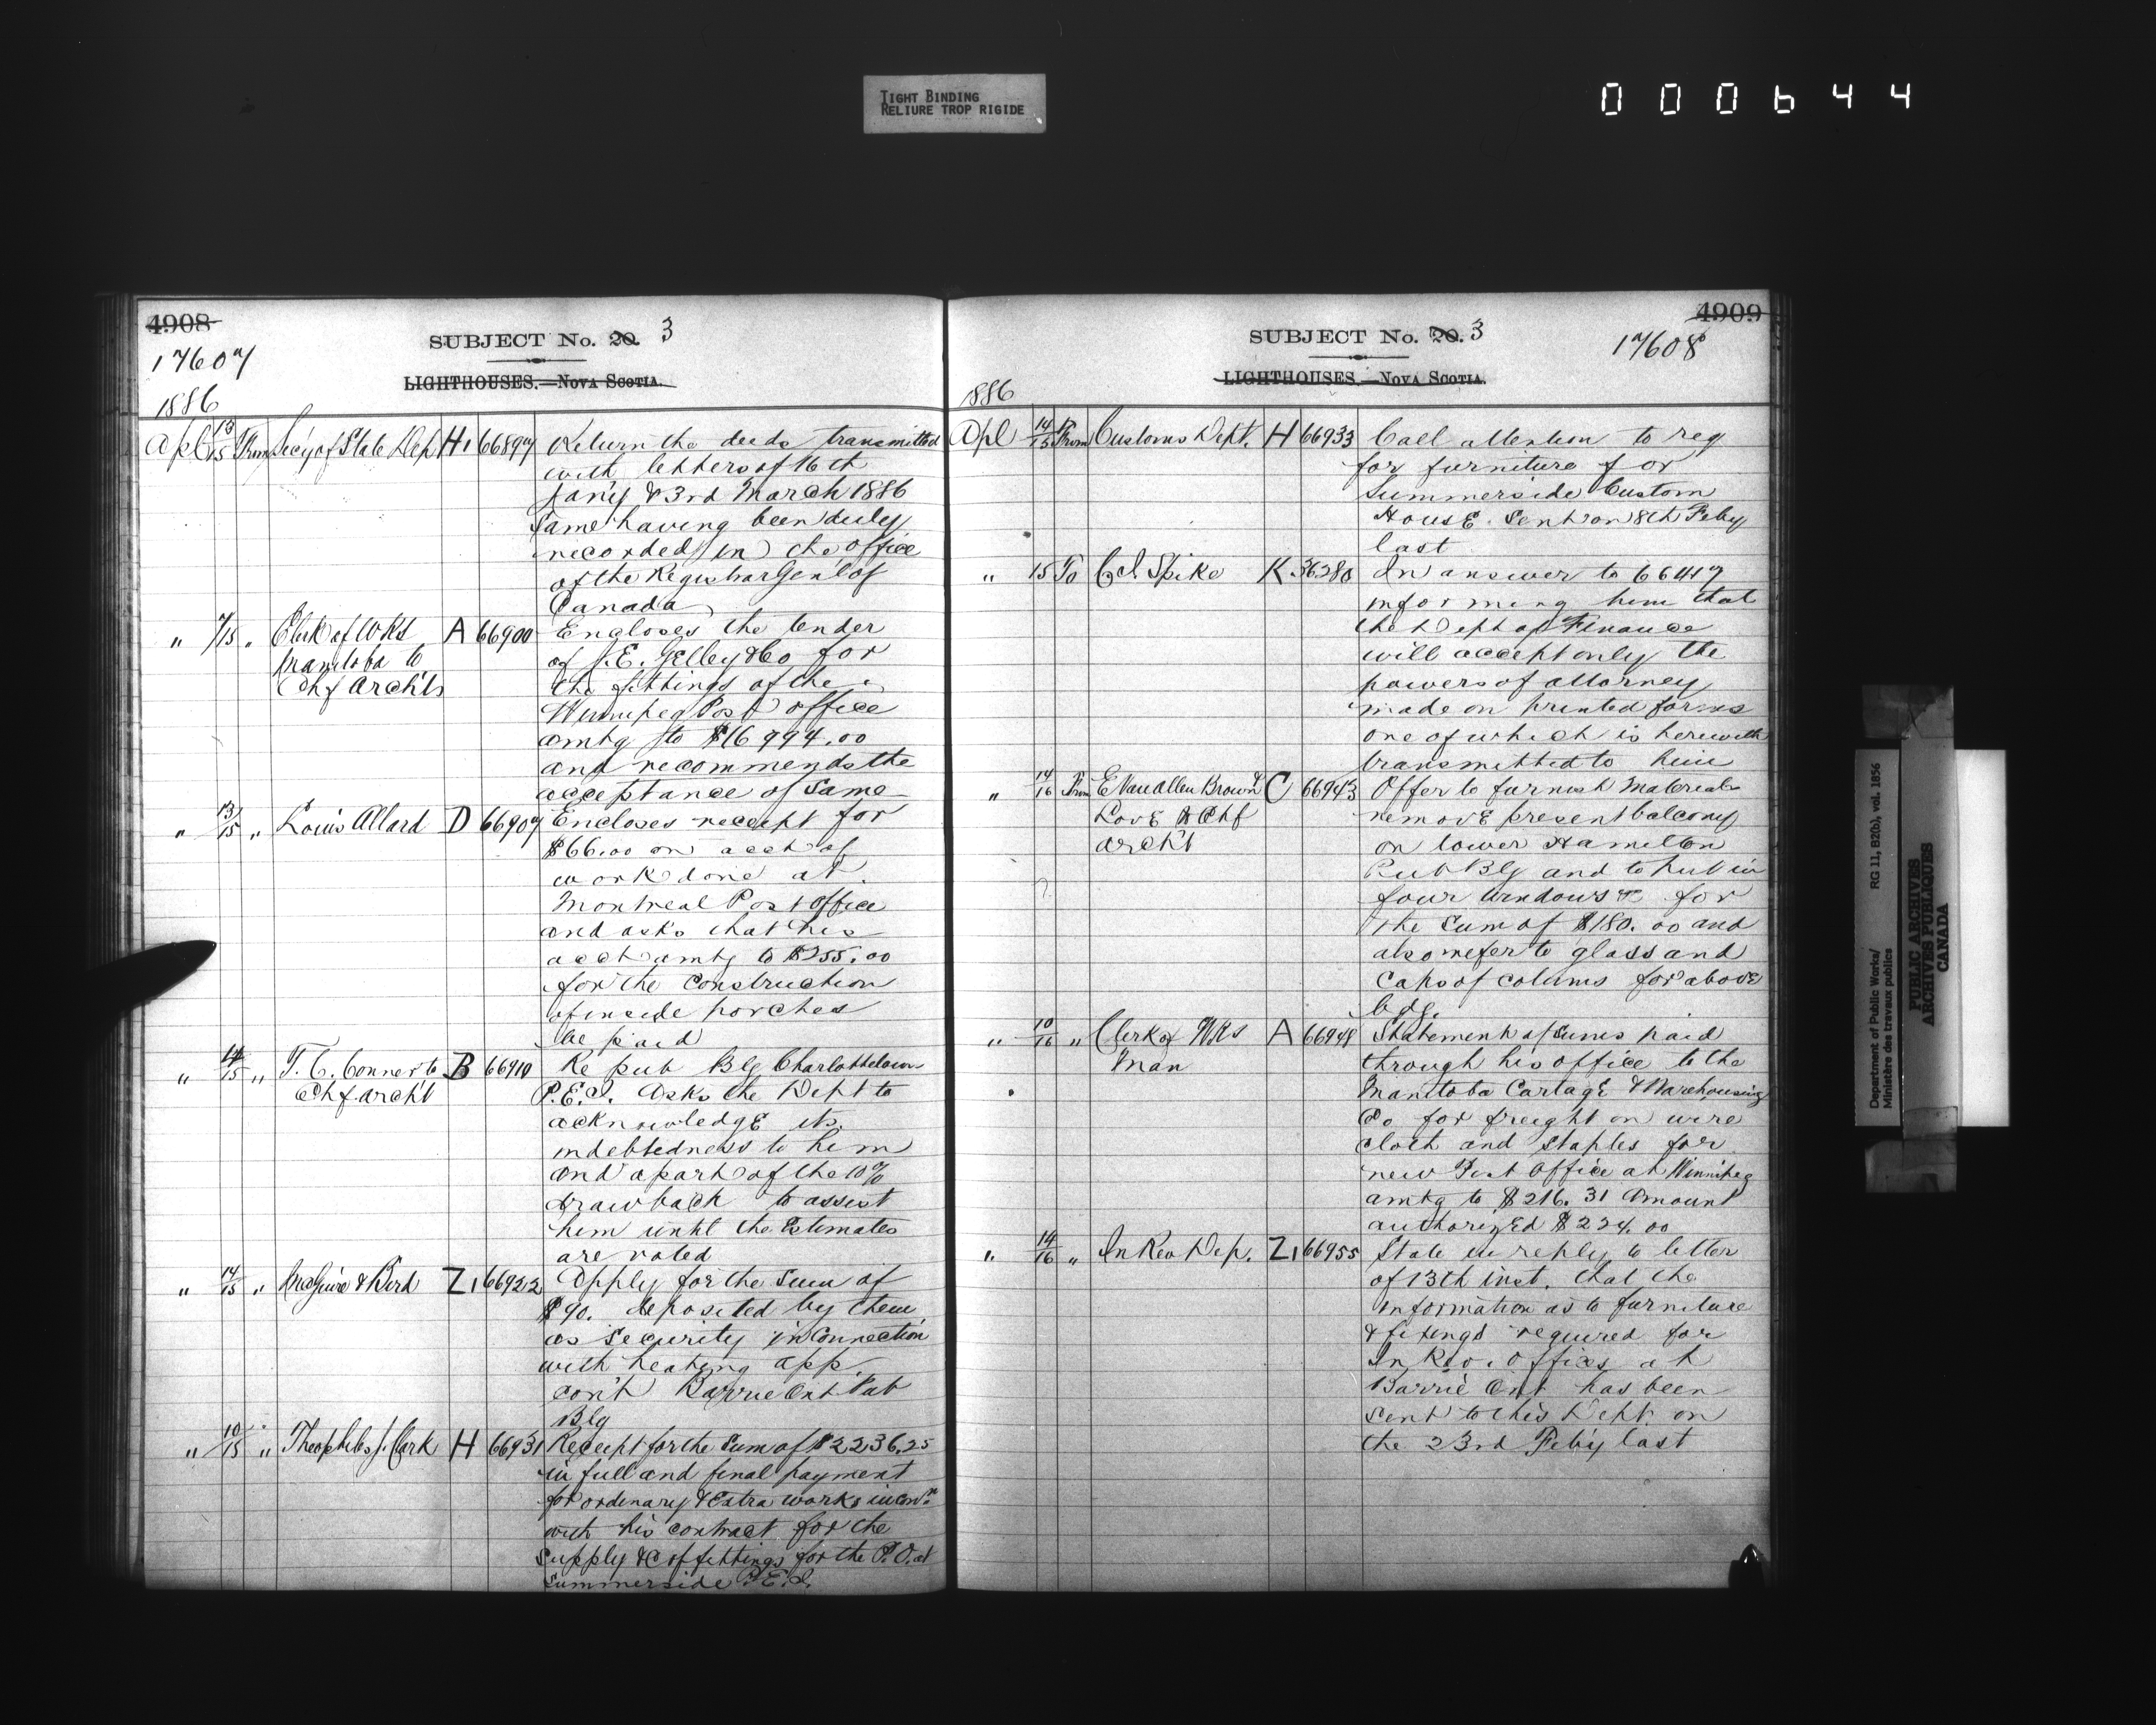 TIGHT BINDING
RELIURE TROP RIGIDE
000644
4908
SUBJECT No. 20. 3
17607
LIGHTHOUSES.—NOVA SCOTIA.
1886
Apl 13/15 From Secy of State Dep H1 66897 Return the deeds transmitted
with letters of 16th
Jan'y & 3rd March 1886
same having been duly
recorded in the office
of the Registrar Gen'l of
Canada
" 7/15 " Clerk of Wks A 66900 Encloses the tender
Manitoba to of J. E. Gelley & Co for
Chf Arch't the fittings of the
Winnipeg Post office
amtg to $16994.00
and recommends the
acceptance of same
" 13/15 " Louis Allard D 66907 Encloses receipt for
$66.00 on acct of
work done at
Montreal Post Office
and asks that his
acct amtg to $255.00
for the construction
of inside porches
be paid
" 14/15 " T. C. Conner to B 66910 Re pub Blg Charlottetown
Chf archt P.E.I. Asks the Dept to
acknowledge its
indebtedness to him
and a part of the 10%
drawback to assist
him until the Estimates
are voted
" 14/15 " McGuire & Bird Z1 66922 Apply for the sum of
$90. deposited by them
as security in connection
with heating app
con't Barrie Ont Pub
Blg
" 10/15 " Theophilus J. Clark H 66931 Receipt for the sum of $2236.25
in full and final payment
for ordinary & Extra works in con'n
with his contract for the
supply &c of fittings for the P.O. at
Summerside P.E.I.
4909
SUBJECT No. 20. 3
17608
LIGHTHOUSES.—NOVA SCOTIA.
1886
Apl 14/15 From Customs Dept. H 66933 Call attention to req
for furniture for
Summerside Custom
House. Sent on 8th Feby
last
" 15 To C. I. Spike K. 36280 In answer to 66417
informing him that
the Dept of Finance
will accept only the
powers of attorney
made on printed forms
one of which is herewith
transmitted to him
" 14/16 From E Van Allen Brown & C 66943 Offer to furnish materials
Love Chf remove present balcony
arch't on lower Hamilton
Pub Blg and to put in
four windows &c for
the sum of $180.00 and
also refer to glass and
Caps of colums for above
bdg.
" 10/16 " Clerk of Wks A 66948 Statement of sums paid
Man through his office to the
Manitoba Cartage & Warehousing
Co for freight on wire
cloth and staples for
new Post Office at Winnipeg
amtg to $216.31 Amount
authorized $224.00
" 14/16 " In Rev Dep. Z1 66955 State in reply to letter
of 13th inst. that the
information as to furniture
& fixings required for
In Rev. Offices at
Barrie Ont has been
sent to this Dept on
the 23rd Feby last
Department of Public Works/
Ministère des travaux publics
RG 11, B2(b), vol. 1856
PUBLIC ARCHIVES
ARCHIVES PUBLIQUES
CANADA